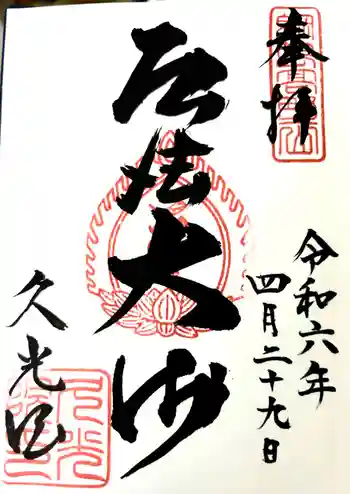 奉拝
令和六年
四月二十九日
弘法大師
久光院